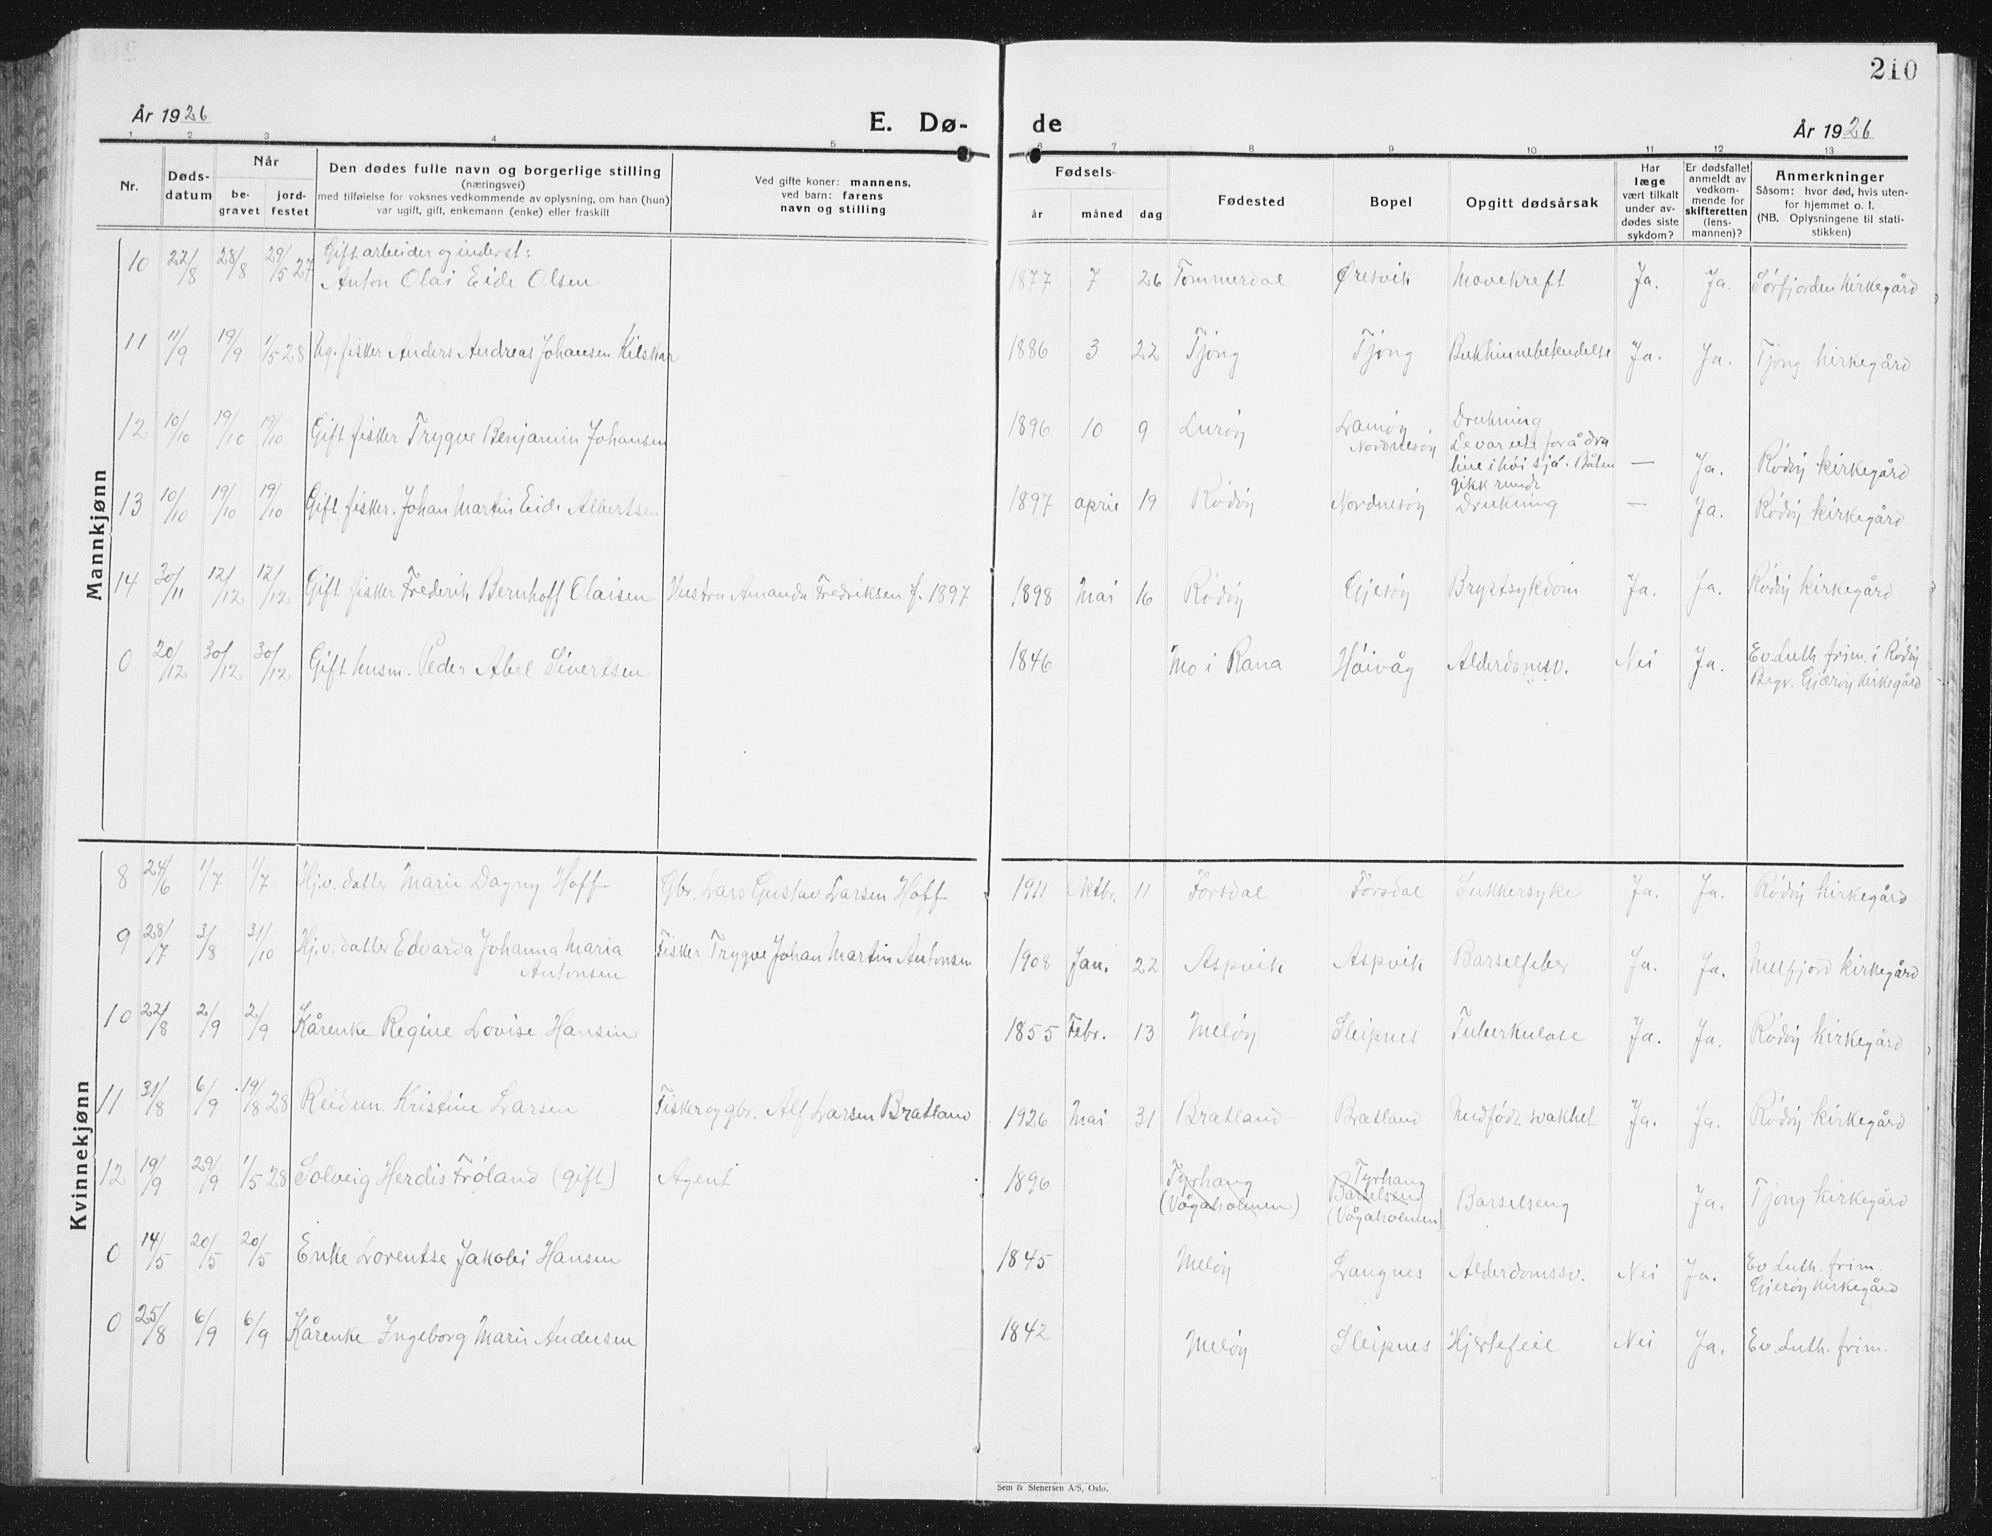 210
År 1926
E. Dø-
de
År 1926
1 2 3 4 5 6 7 8 9 10 11 12 13
Nr.
Døds-
datum
Når
be-
gravet
jord-
festet
Den dødes fulle navn og borgerlige stilling
(næringsvei)
med tilføielse for voksnes vedkommende av oplysning, om han (hun)
var ugift, gift, enkemann (enke) eller fraskilt
Ved gifte koner: mannens,
ved barn: farens
navn og stilling
Fødsels-
år måned dag
Fødested
Bopel
Opgitt dødsårsak
Har
læge
vært tilkalt
under av-
dødes siste
sykdom?
Er dødsfallet
anmeldt av
vedkom-
mende for
skifteretten
(lens-
mannen)?
Anmerkninger
Såsom: hvor død, hvis uten-
for hjemmet o. l.
(NB. Oplysningene til stati-
stikken)
Mannkjønn
Gift arbeider og inderst:
10 22/8 28/8 29/5 27 Anton Olai Eide Olsen 1877 7 26 Tommerdal Øresvik Mavekreft Ja. Ja. Sørfjorden kirkegård
11 11/9 19/9 1/5 28 Ug. fisker Anders Andreas Johansen Kilskar 1886 3 22 Tjong Tjong Bukhinnebetendelse Ja. Ja. Tjong kirkegård
12 10/10 19/10 19/10 Gift fisker Trygve Benjamin Johansen 1896 10 9 Lurøy Nordnesøy Drukning
De var ute for å dra
line i høi sjø. Båten
gikk rundt — Ja. Rødøy kirkegård
13 10/10 19/10 19/10 Gift fisker. Johan Martin Eide Albertsen 1897 april 19 Rødøy Nordnesøy Drukning — Ja. Rødøy kirkegård
14 30/11 12/12 12/12 Gift fisker Frederik Bernhoff Olaisen Hustru Amanda Fredriksen f. 1897 1898 Mai 16 Rødøy Gjesøy Brystsykdom Ja. Ja. Rødøy kirkegård
0 20/12 30/12 30/12 Gift husm. Peder Abel Sivertsen 1846 Mo i Rana Høivåg Alderdomsv. Nei Ja. Ev. Luth. frim. i Rødøy
Begr. Gjærøy kirkegård
Kvinnekjønn
8 24/6 1/7 1/7 Hj.v. datter Marie Dagny Hoff Gbr. Lars Gustav Larsen Hoff 1911 Oktbr. 11 Forsdal Forsdal Sukkersyke Ja. Ja. Rødøy kirkegård
9 28/7 3/8 31/10 Hj.v. datter Edvarda Johanna Maria
Antonsen Fisker Trygve Johan Martin Antonsen 1908 Jan. 22 Aspvik Aspvik Barselfeber Ja. Ja. Melfjord kirkegård
10 22/8 2/9 2/9 Kårenke Regine Lovise Hansen 1855 Febr. 13 Meløy Sleipnes Tuberkulose Ja. Ja. Rødøy kirkegård
11 31/8 6/9 19/8 28 Reidun Kristine Larsen Fisker og gbr. Alf Larsen Bratland 1926 Mai 31 Bratland Bratland Medfødt svakhet Ja. Ja. Rødøy kirkegård
12 19/9 29/9 1/5 28 Solveig Herdis Frøland (gift) Agent 1896 Tyrhaug
(Vågaholmen) Tyrhaug
Barselseng
(Vågaholmen) Barselseng Ja. Tjong kirkegård
0 14/5 20/5 20/5 Enke Lorentse Jakobi Hansen 1845 Meløy Langnes Alderdomssv. Nei Ja. Ev. Luth. frim.
Gjerøy kirkegård
0 25/8 6/9 6/9 Kårenke Ingeborg Marie Andersen 1842 Meløy Sleipnes Hjertefeil Nei Ja. Ev. Luth. frim.
Sem & Stenersen A/S, Oslo.